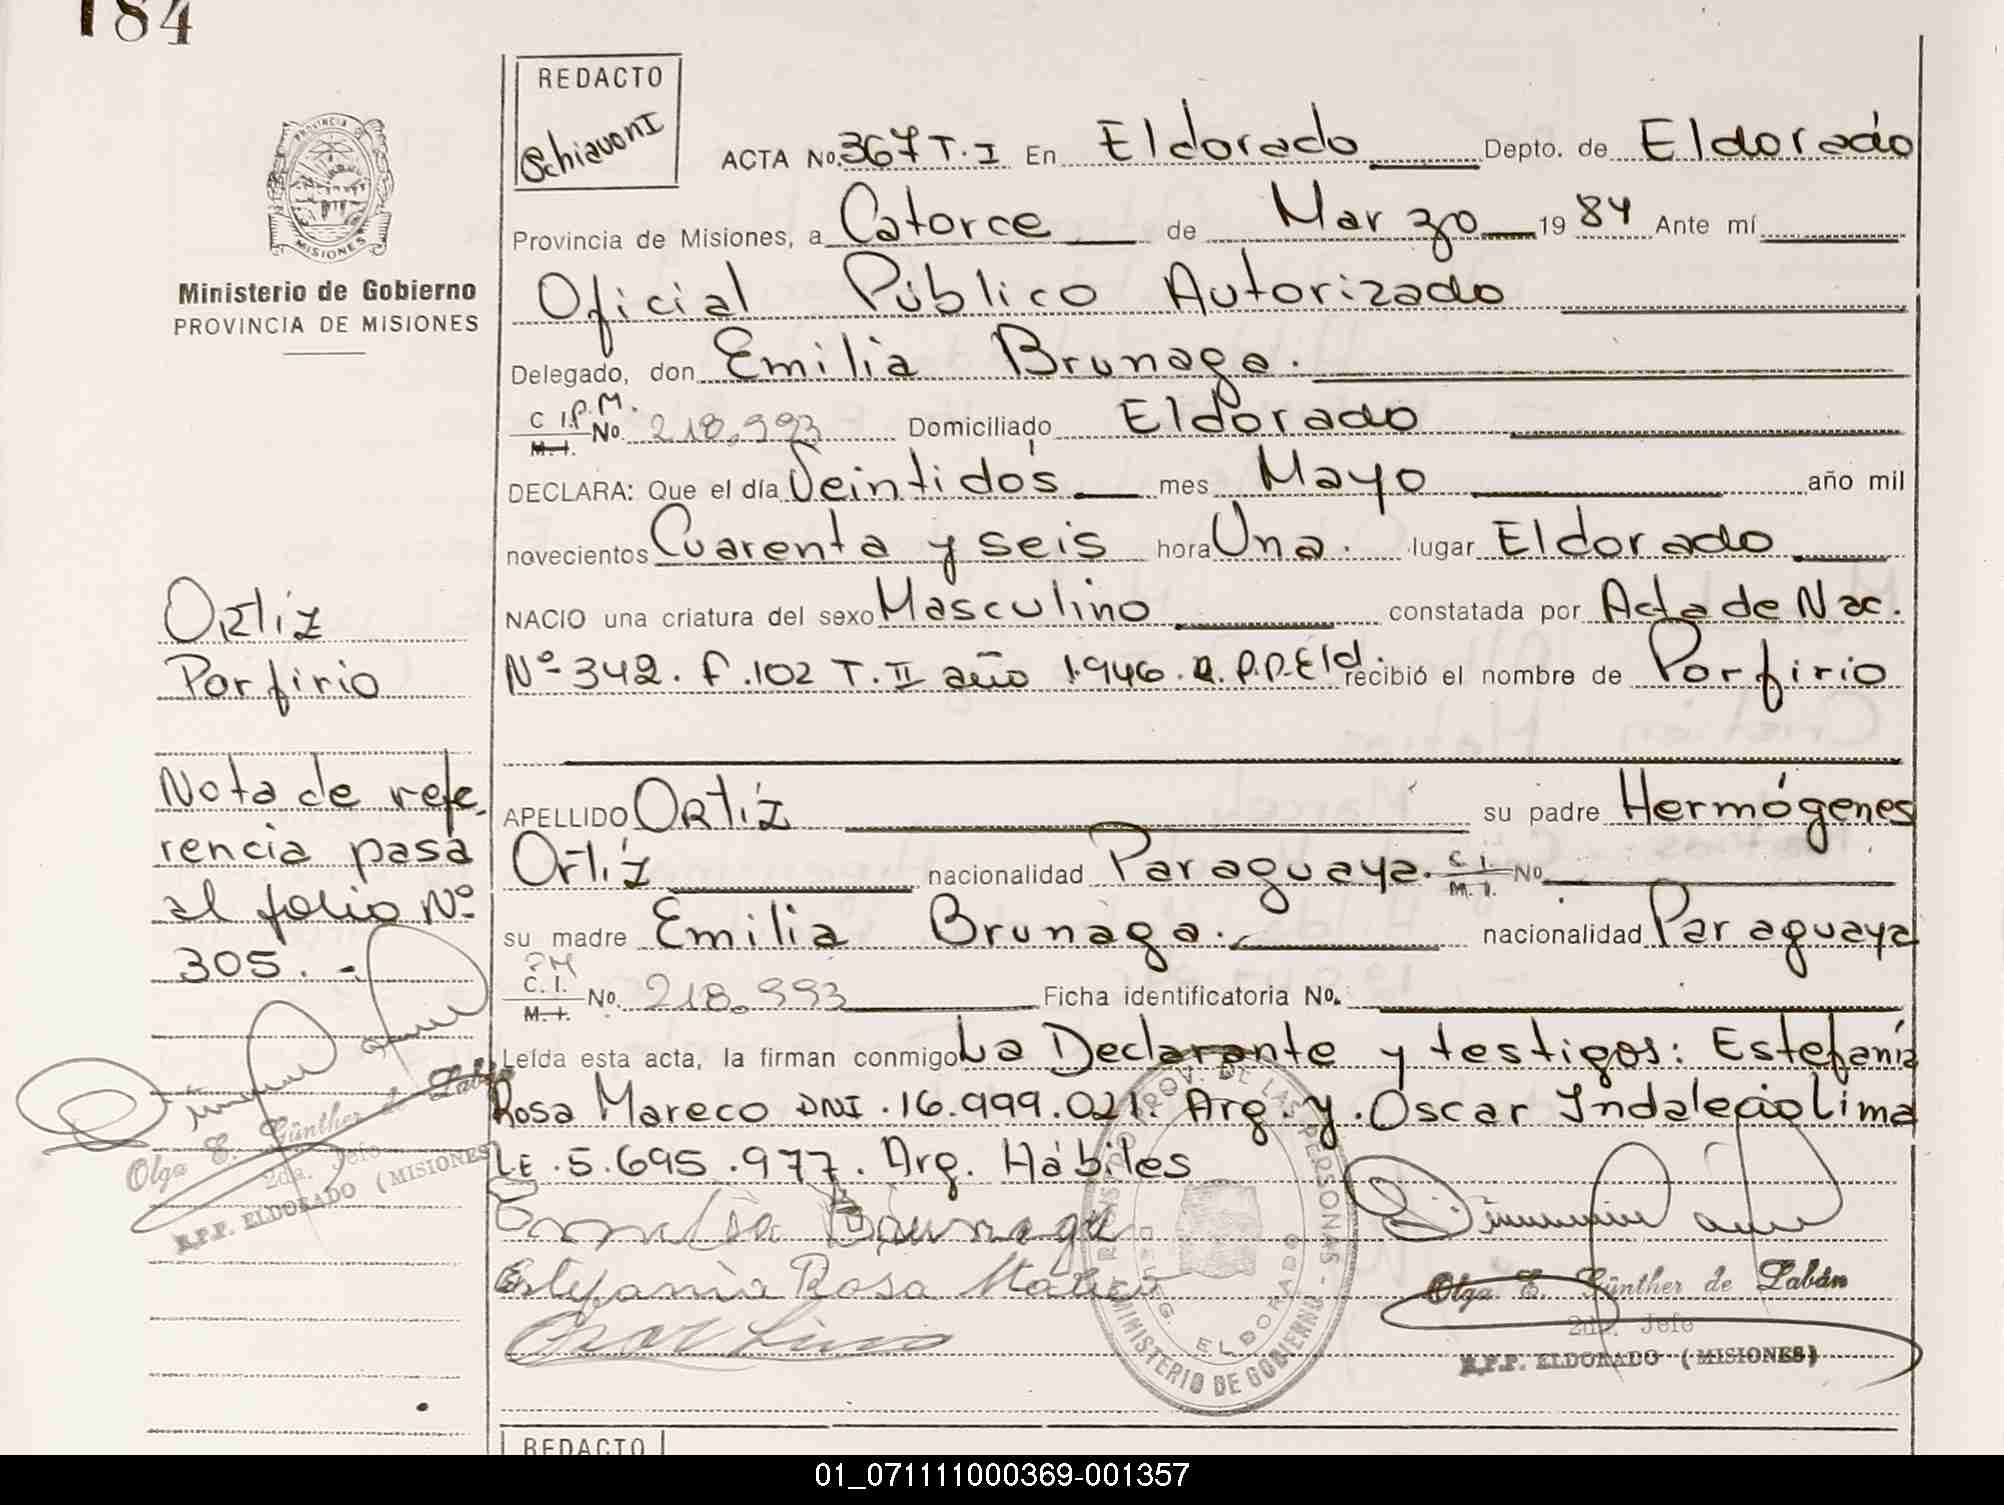 184
REDACTO
Schiavoni
PROVINCIA DE
MISIONES
Ministerio de Gobierno
PROVINCIA DE MISIONES
ACTA No. 367 T.I En Eldorado Depto. de Eldorado
Provincia de Misiones, a Catorce de Marzo 1984 Ante mí
Oficial Público Autorizado
Delegado, don Emilia Brunaga.
C I.P.M.
M.I. No. 218.993 Domiciliado Eldorado
DECLARA: Que el día Veintidós mes Mayo año mil
novecientos Cuarenta y seis hora Una. lugar Eldorado
NACIO una criatura del sexo Masculino constatada por Acta de Nac.
Nº 342. F.102 T.II año 1.946. R.P.P-Eld. recibió el nombre de Porfirio
APELLIDO Ortíz su padre Hermógenes
Ortíz nacionalidad Paraguaya. C.I. M.I. No
su madre Emilia Brunaga. nacionalidad Paraguaya
PM
C.I.
M.I. No. 218.993 Ficha identificatoria No.
Leída esta acta, la firman conmigo La Declarante y testigos: Estefanía
Rosa Mareco DNI.16.999.021. Arg. y. Oscar Indalecio Lima
LE.5.695.977. Arg. Hábiles
Ortíz
Porfirio
Nota de refe-
rencia pasa
al folio Nº
305.-
Olga E. Günther de Labán
2da. Jefe
R.P.P. ELDORADO (MISIONES)
Emilia Brunaga
Estefanía Rosa Mareco
Oscar Lima
PROV. DE LAS PERSONAS - MINISTERIO DE GOBIERNO
ELDORADO
Olga E. Günther de Labán
2da. Jefe
R.P.P. ELDORADO (MISIONES)
REDACTO
01_071111000369-001357